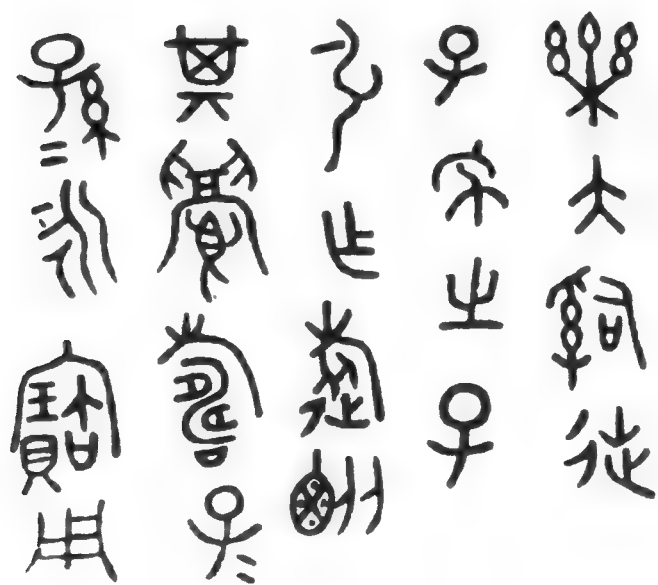 樂大司徒
子宋之子
引乍旅
其眉壽子=
孫=永寶用